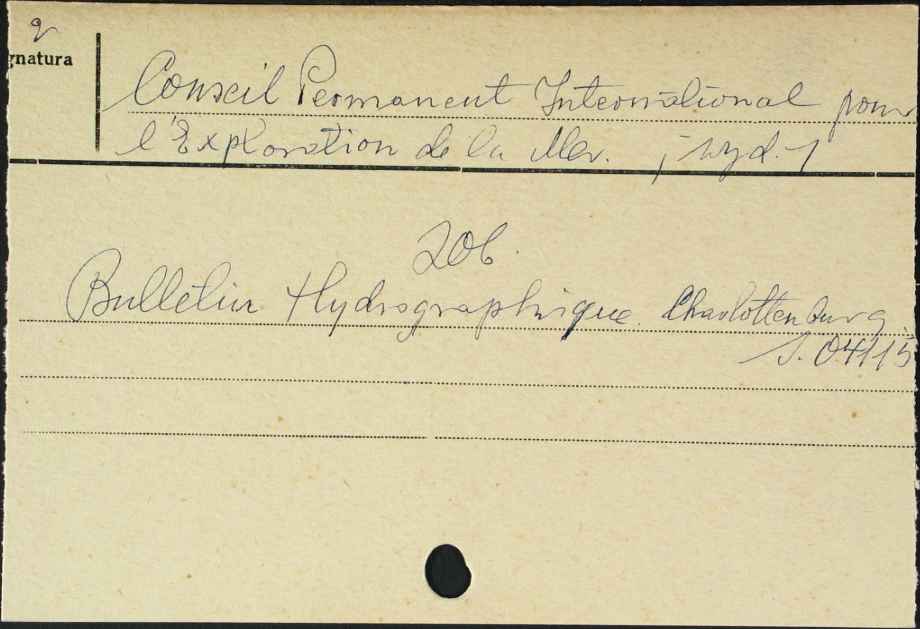 gnatura
Conseil Permanent International pour
l'Exploration de la Mer. ; wyd.
Zob.
Bulletin Hydrographique. Charlottenburg
S. 04115